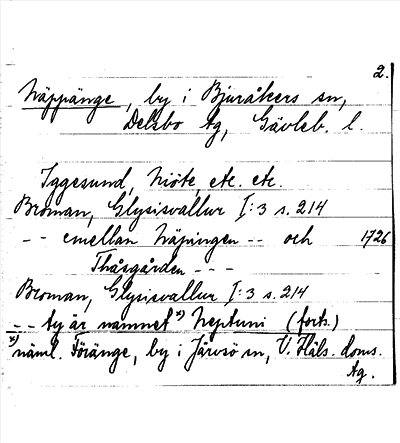 2.
Näppänge, by i Bjuråkers sn,
Delsbo tg, Gävleb. l.
Iggesund, Niöte, etc. etc.
Broman, Glysisvallur I:3 s. 214
-- emellan Näpningen -- och 1726
Thåsgården ---
Broman, Glysisvallur I:3 s. 214
-- ty är namnet x) Neptuni (forts.)
x) näml. Föränge, by i Järvsö sn, V. Häls. doms.
tg.